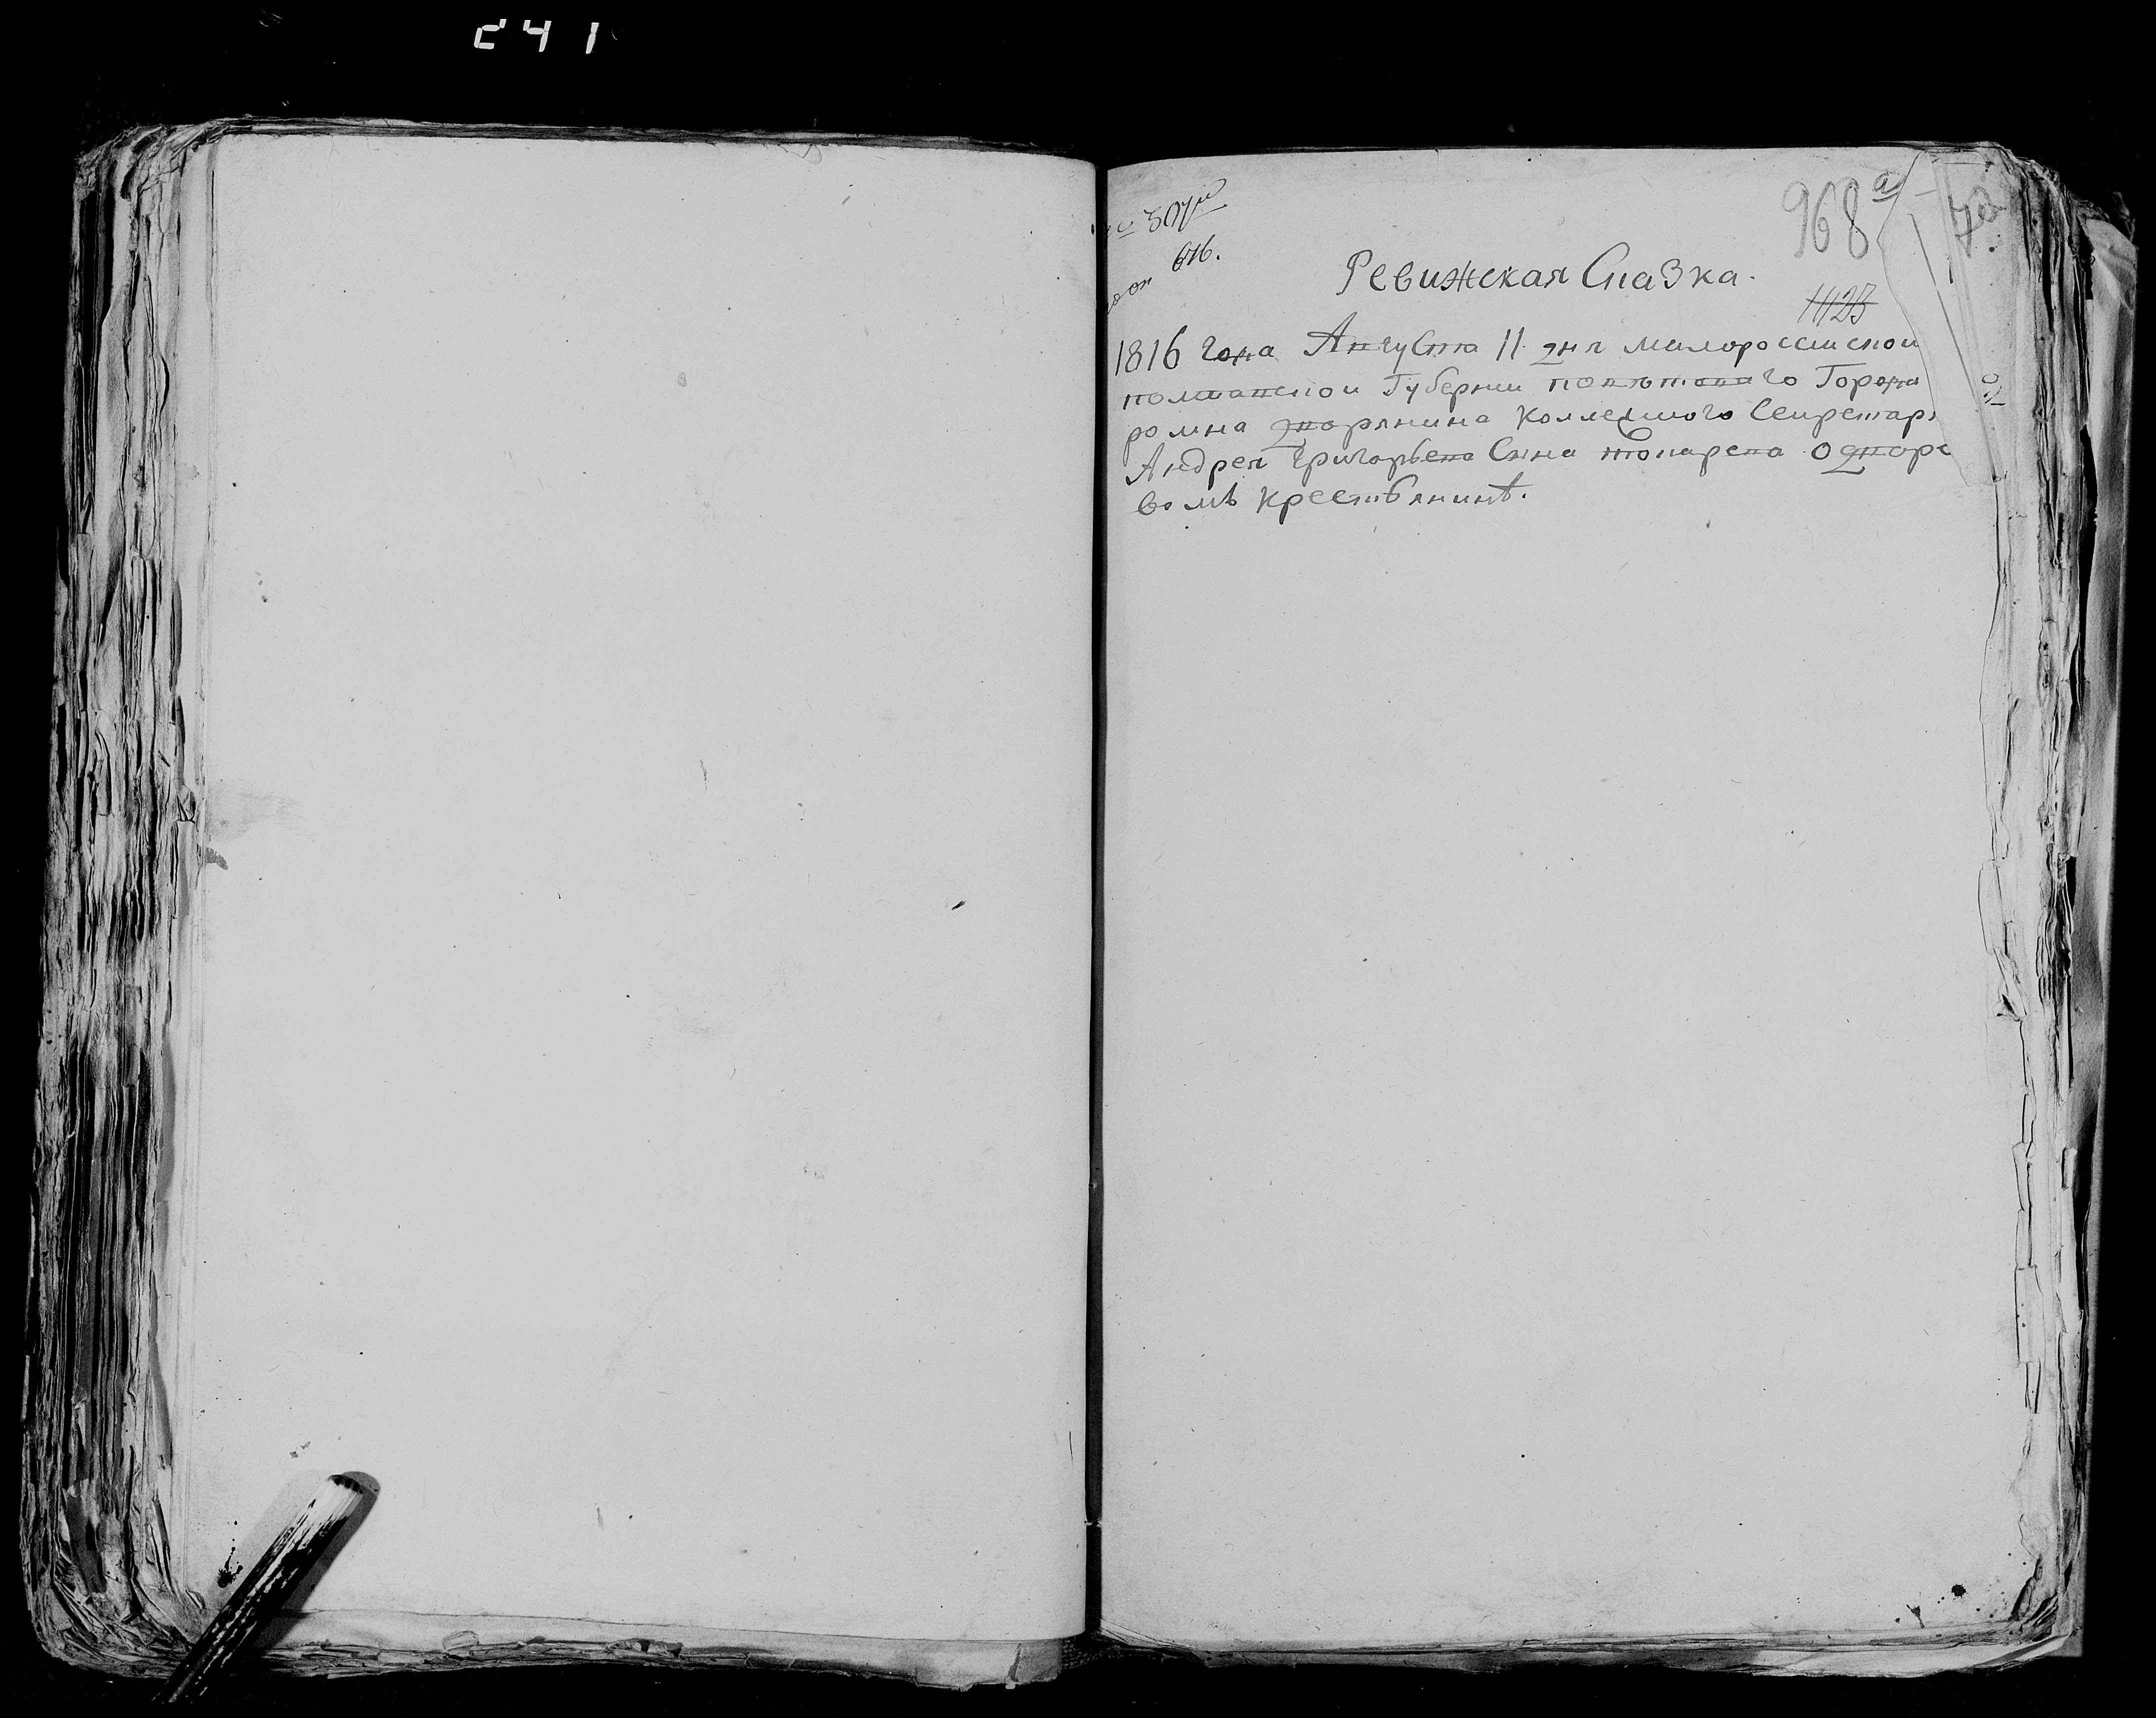 241
968 а
307й
616.
Ревижская Сказка.
1123
1816 года Августа 11 дня малороссииской
полтавской Губернии поветового Города
ромна дворянина Коллежского Секретаря
Андрея Григорьева Сина токарева о дворо
вомъ крестьянинѣ.